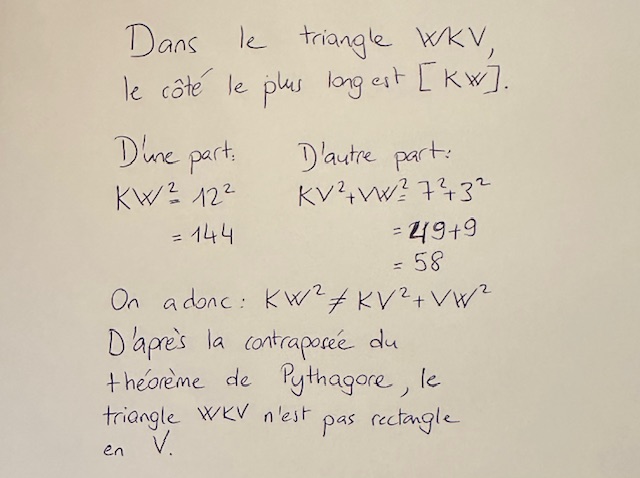 Dans le triangle WKV,
le côté le plus long est [KW].
D'une part:
KW² = 12²
= 144
D'autre part:
KV²+VW² = 7²+3²
= 49+9
= 58
On a donc: KW² ≠ KV²+VW²
D'après la contraposée du
théorème de Pythagore, le
triangle WKV n'est pas rectangle
en V.